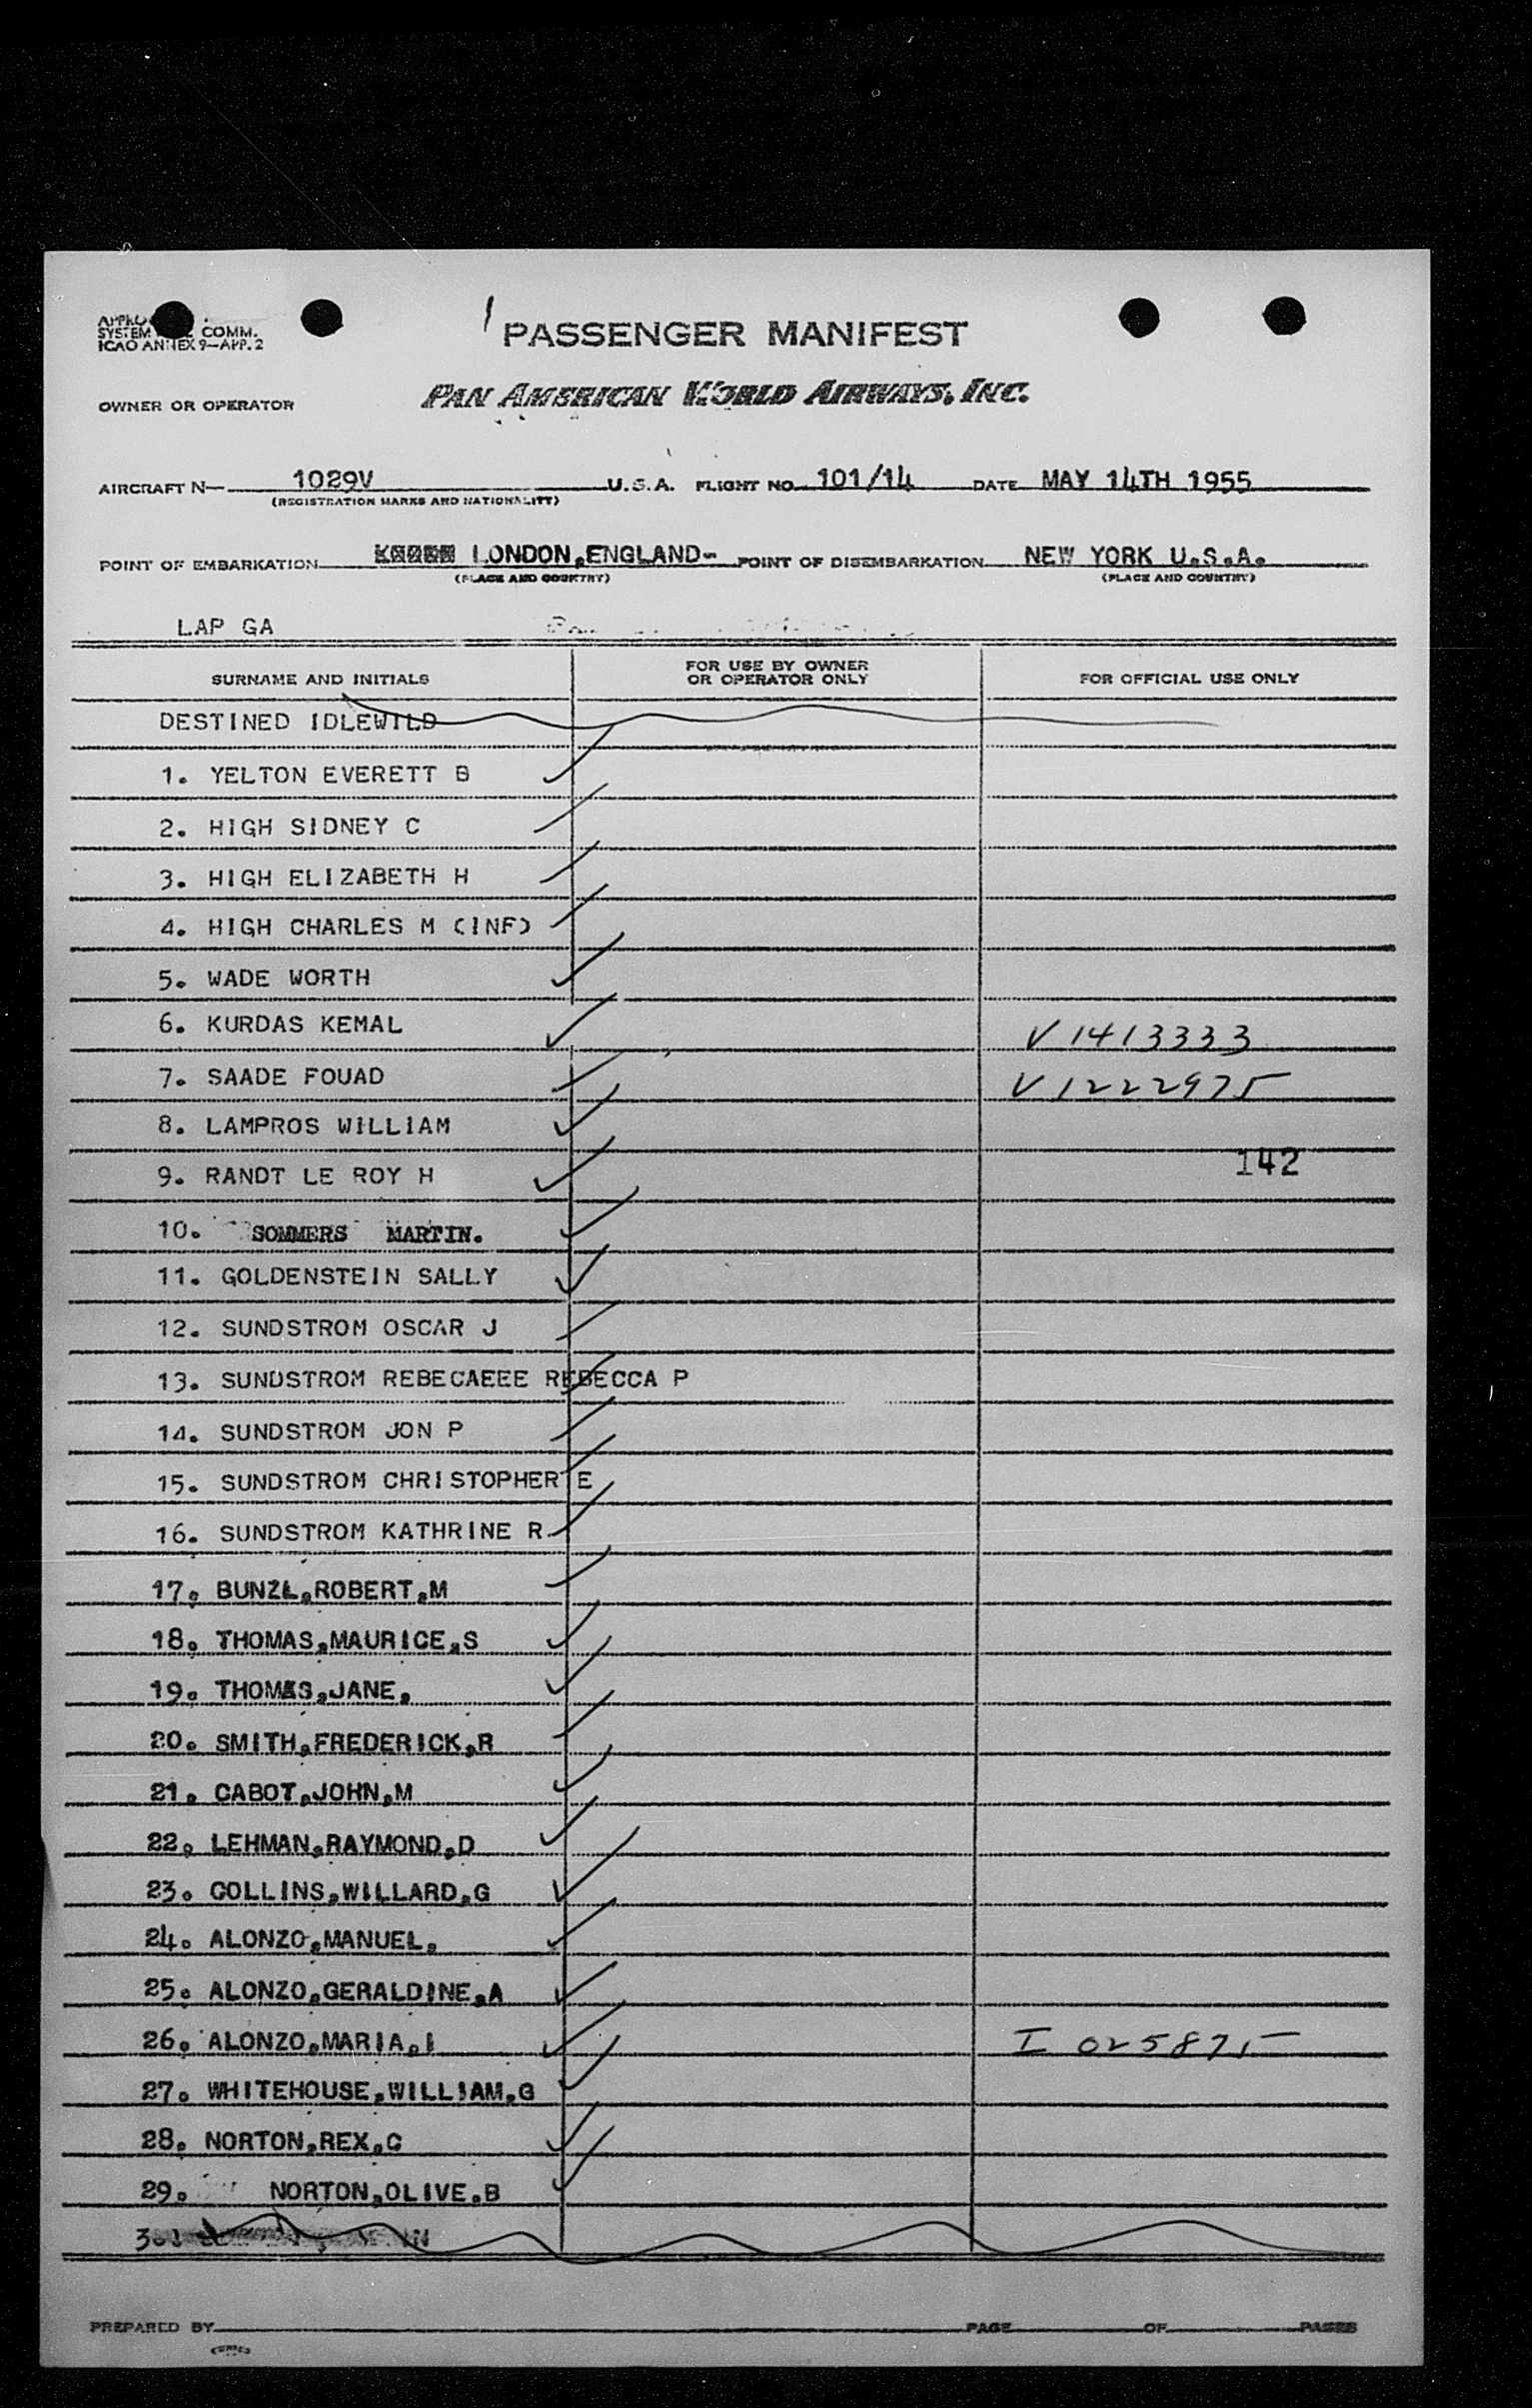 PASSENGER MANIFEST
SYSTEM COMM.
ICAO ANNEX 9—APP. 2
OWNER OR OPERATOR PAN AMERICAN WORLD AIRWAYS, INC.
AIRCRAFT N— 1029V U.S.A. FLIGHT NO. 101/14 DATE MAY 14TH 1955
(REGISTRATION MARKS AND NATIONALITY)
POINT OF EMBARKATION LONDON,ENGLAND- POINT OF DISEMBARKATION NEW YORK U.S.A.
(PLACE AND COUNTRY) (PLACE AND COUNTRY)
LAP GA
SURNAME AND INITIALS FOR USE BY OWNER OR OPERATOR ONLY FOR OFFICIAL USE ONLY
DESTINED IDLEWILD
1. YELTON EVERETT B
2. HIGH SIDNEY C
3. HIGH ELIZABETH H
4. HIGH CHARLES M (INF)
5. WADE WORTH
6. KURDAS KEMAL V 1413333
7. SAADE FOUAD V 1222975
8. LAMPROS WILLIAM
142
9. RANDT LE ROY H
10. SOMMERS MARTIN.
11. GOLDENSTEIN SALLY
12. SUNDSTROM OSCAR J
13. SUNDSTROM REBECAEEE REBECCA P
14. SUNDSTROM JON P
15. SUNDSTROM CHRISTOPHER E
16. SUNDSTROM KATHRINE R
17. BUNZL,ROBERT,M
18. THOMAS,MAURICE,S
19. THOMAS,JANE,
20. SMITH,FREDERICK,R
21. CABOT,JOHN,M
22. LEHMAN,RAYMOND,D
23. COLLINS,WILLARD,G
24. ALONZO,MANUEL,
25. ALONZO,GERALDINE,A
26. ALONZO,MARIA,I I 025875
27. WHITEHOUSE,WILLIAM,G
28. NORTON,REX,C
29. NORTON,OLIVE,B
PREPARED BY PAGE OF PAGES